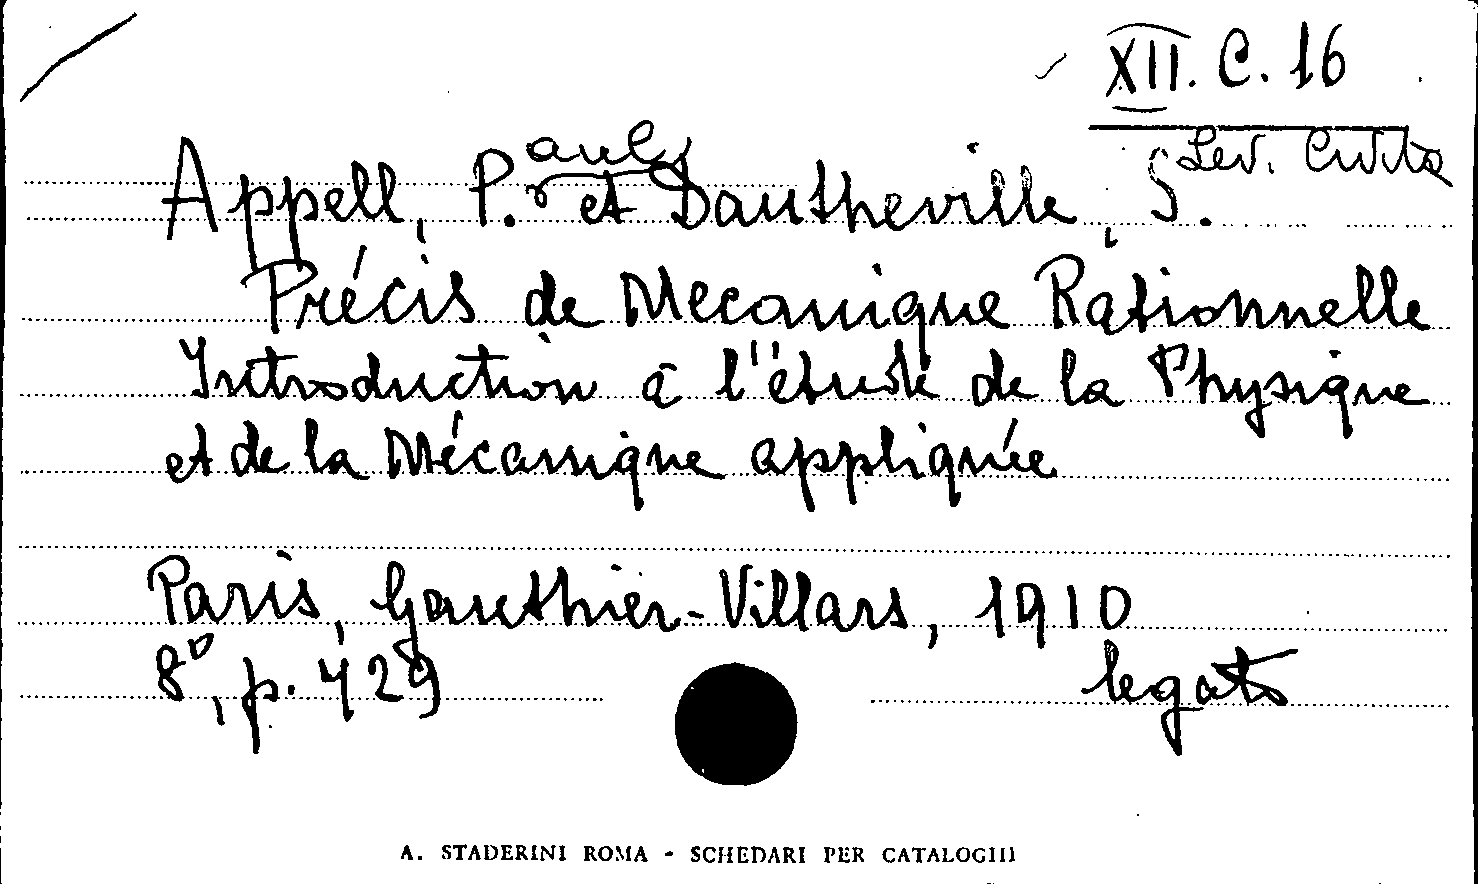 XII. C. 16
Lev. Civita
Appell, P.aul et Dautheville, S.
Précis de Mecanique Rationnelle
Introduction à l'étude de la Physique
et de la Mécanique appliquée
Paris, Gauthier-Villars, 1910
8°, p. 729
legato
A. STADERINI ROMA - SCHEDARI PER CATALOGHI